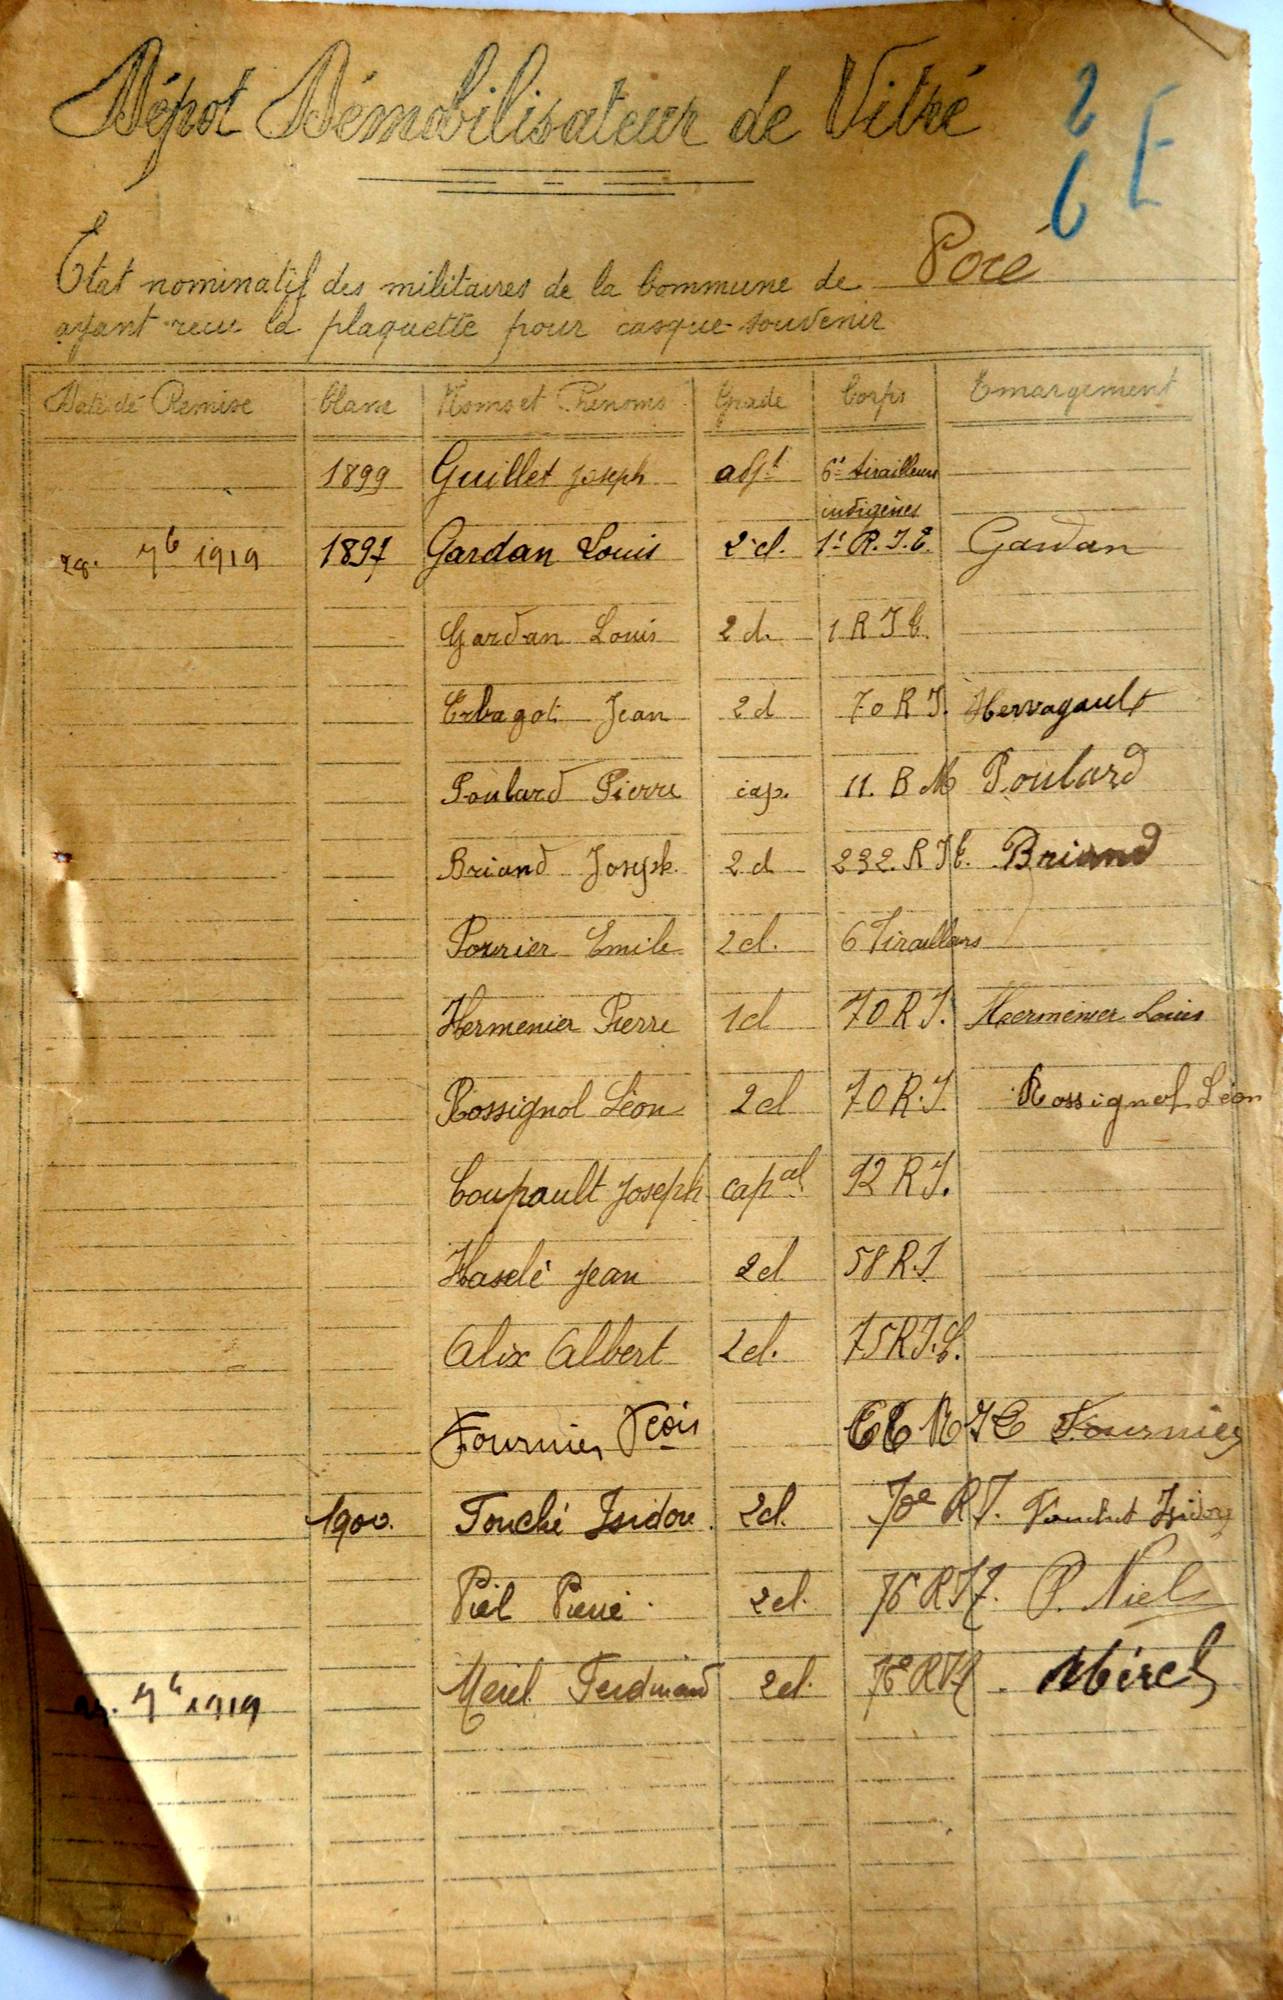 Dépot Démobilisateur de Vitré
2 E
6
Etat nominatif des militaires de la Commune de Pocé
ayant recu la plaquette pour casque souvenir
Date de Remise Classe Noms et Prénoms Grade Corps Emargement
1899 Guillet Joseph adjt 6e tirailleurs
indigènes
28. 7b 1919 1897 Gardan Louis 2 cl. 1e R.I.C. Gardan
Gardan Louis 2 cl. 1 R I C.
Erbagot Jean 2 cl 70 R I. Hervagault
Poulard Pierre cap. 11. B M Poulard
Briand Joseph. 2 cl 232. R I C. Briand
Poirier Emile 2 cl. 6 Tirailleurs
Hermenier Pierre 1 cl 70 R I. Hermenier Louis
Rossignol Léon 2 cl 70 R.I. Rossignol Léon
Coupault Joseph capal 92 R I.
Haselé Jean 2 cl 58 R I
Alix Albert 2 cl. 75 R.I.C.
Fournier Fçois R I C Fournier
1900. Touché Isidore 2 cl. 70e R I.
Piel Pierre. 2 cl. 76 R I T. P. Niel
Merel Ferdinand 2 cl. 76e R I T. Mérel
7b 1919